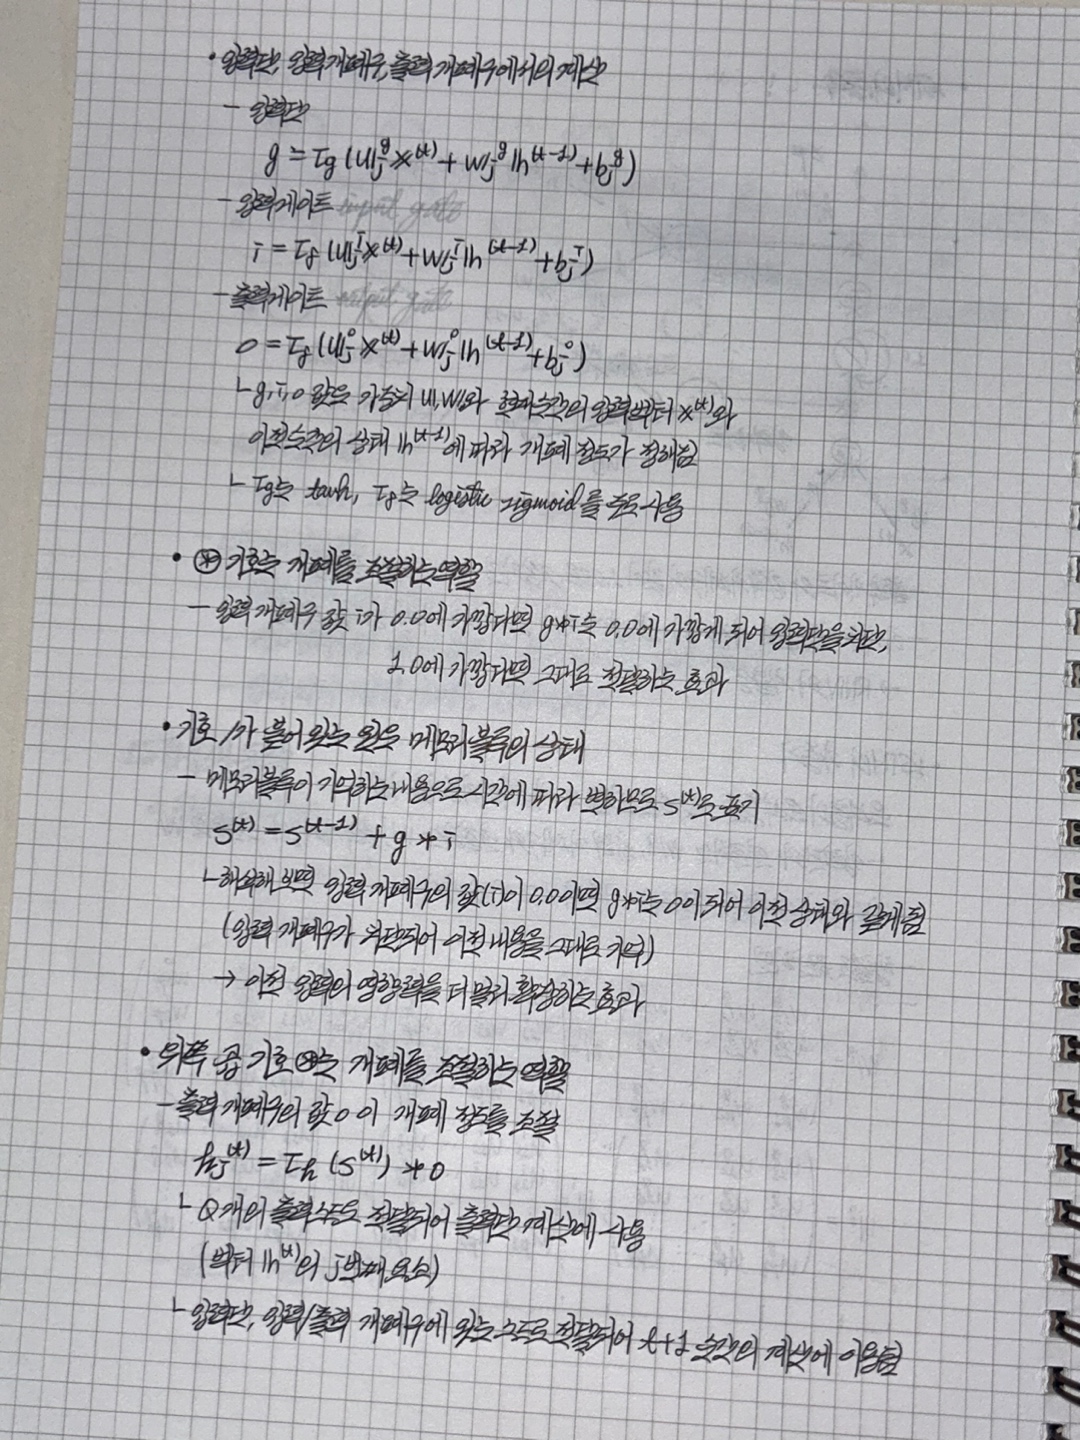 • 입력단, 입력 개폐구, 출력 개폐구에서의 계산
- 입력단
g = τg (𝕦ⱼᵍ𝕩⁽ᵗ⁾ + 𝕨ⱼᵍ𝕙⁽ᵗ⁻¹⁾ + bⱼᵍ)
- 입력게이트 input gate
i = τf (𝕦ⱼⁱ𝕩⁽ᵗ⁾ + 𝕨ⱼⁱ𝕙⁽ᵗ⁻¹⁾ + bⱼⁱ)
- 출력게이트 output gate
o = τf (𝕦ⱼᵒ𝕩⁽ᵗ⁾ + 𝕨ⱼᵒ𝕙⁽ᵗ⁻¹⁾ + bⱼᵒ)
└ g, i, o 값은 가중치 𝕦, 𝕨와 현재 순간의 입력 벡터 𝕩⁽ᵗ⁾와
이전 순간의 상태 𝕙⁽ᵗ⁻¹⁾에 따라 개폐 정도가 정해짐
└ τg는 tanh, τf는 logistic sigmoid를 주로 사용
• ⊛ 기호는 개폐를 조절하는 역할
- 입력 개폐구 값 i가 0.0에 가깝다면 g*i는 0.0에 가깝게 되어 입력단을 차단,
1.0에 가깝다면 그대로 전달하는 효과
• 기호 /가 붙어 있는 원은 메모리 블록의 상태
- 메모리 블록이 기억하는 내용으로 시간에 따라 변하므로 s⁽ᵗ⁾로 표기
s⁽ᵗ⁾ = s⁽ᵗ⁻¹⁾ + g * i
└ 해석해 보면 입력 개폐구의 값(i)이 0.0이면 g*i는 0이 되어 이전 상태와 같게 됨
(입력 개폐구가 차단되어 이전 내용을 그대로 기억)
→ 이전 입력의 영향력을 더 멀리 확장하는 효과
• 위쪽 곱 기호 ⊛는 개폐를 조절하는 역할
- 출력 개폐구의 값 o이 개폐 정도를 조절
hⱼ⁽ᵗ⁾ = τh (s⁽ᵗ⁾) * o
└ Q개의 출력 노드로 전달되어 출력단 계산에 사용
(벡터 𝕙⁽ᵗ⁾의 j번째 요소)
└ 입력단, 입력/출력 개폐구에 있는 노드로 전달되어 t+1 순간의 계산에 이용됨